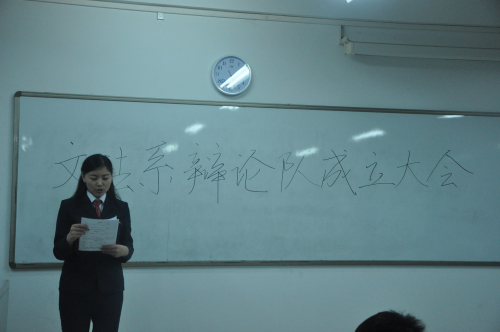 文法系辩论队成立大会